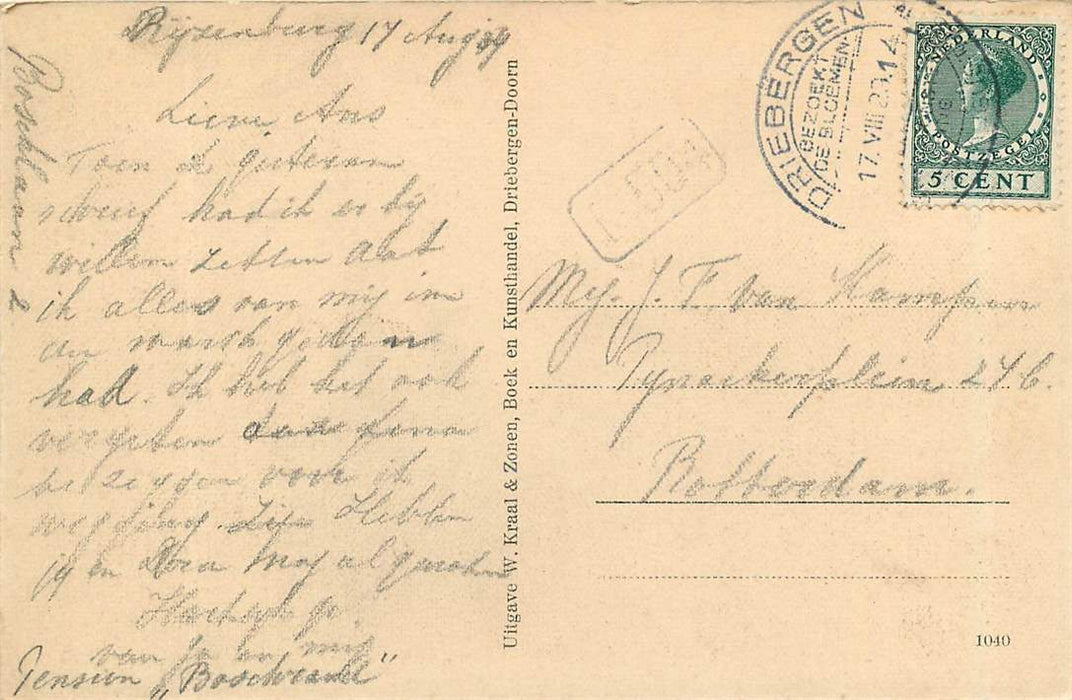 Rijzenburg 17 Aug 39
Lieve Ans
Toen ik gisteren
schreef had ik er bij
willen zetten dat
ik alles van mij in
de wasch gedaan
had. Ik heb het ook
vergeten
te zeggen voor ik
weg ging. Hebben
jij en Dora nog al
van je en mij
Pension „Boschrand"
Boschlaan 2
Uitgave W. Kraal & Zonen, Boek en Kunsthandel, Driebergen-Doorn
DRIEBERGEN
BEZOEKT
DE BLOEMEN
17.VIII.29.14
NEDERLAND
POSTZEGEL
5 CENT
Mej. J. F. van Kampen
Pijnackerplein 24b.
Rotterdam.
1040